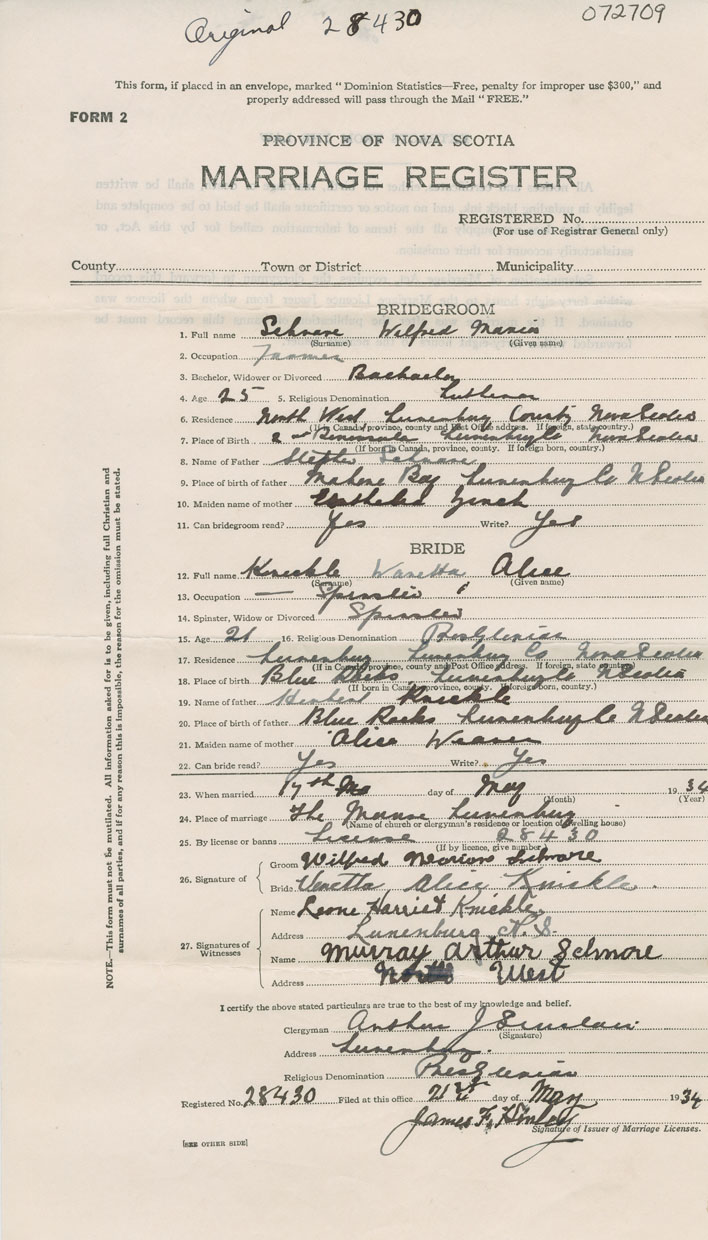 Original 28430
072709
This form, if placed in an envelope, marked “Dominion Statistics—Free, penalty for improper use $300,” and
properly addressed will pass through the Mail “FREE.”
FORM 2
PROVINCE OF NOVA SCOTIA
MARRIAGE REGISTER
REGISTERED No.
(For use of Registrar General only)
County Town or District Municipality
BRIDEGROOM
1. Full name Schnare Wilfred
(Surname) (Given name)
2. Occupation Farmer
3. Bachelor, Widower or Divorced Bachelor
4. Age 25 5. Religious Denomination Lutheran
6. Residence North West Lunenburg County Nova Scotia
(If in Canada, province, county and Post Office address. If foreign, state country.)
7. Place of Birth 2nd Peninsula Lunenburg Co Nova Scotia
(If born in Canada, province, county. If foreign born, country.)
8. Name of Father Schnare
9. Place of birth of father Mahone Bay Lunenburg Co N Scotia
10. Maiden name of mother Zinck
11. Can bridegroom read? Yes Write? Yes
BRIDE
12. Full name Knickle Vanetta Alice
(Surname) (Given name)
13. Occupation — Spinster
14. Spinster, Widow or Divorced Spinster
15. Age 21 16. Religious Denomination Presbyterian
17. Residence Lunenburg Lunenburg Co Nova Scotia
(If in Canada, province, county and Post Office address. If foreign, state country.)
18. Place of birth Blue Rocks Lunenburg Co N Scotia
(If born in Canada, province, county. If foreign born, country.)
19. Name of father Herbert Knickle
20. Place of birth of father Blue Rocks Lunenburg Co N Scotia
21. Maiden name of mother Alice Weaver
22. Can bride read? Yes Write? Yes
23. When married 17th day of May 1934
(Month) (Year)
24. Place of marriage The Manse Lunenburg
(Name of church or clergyman's residence or location of dwelling house)
25. By license or banns License 28430
(If by licence, give number)
26. Signature of
Groom Wilfred Schnare
Bride Venetta Alice Knickle.
27. Signatures of Witnesses
Name Leone Harriet Knickle
Address Lunenburg N.S.
Name Murray Arthur Schnare
Address North West
I certify the above stated particulars are true to the best of my knowledge and belief.
Clergyman Arthur J Sinclair
(Signature)
Address Lunenburg.
Religious Denomination Presbyterian
Registered No. 28430 Filed at this office 21st day of May 1934
James F.
Signature of Issuer of Marriage Licenses.
[SEE OTHER SIDE]
NOTE.—This form must not be mutilated. All information asked for is to be given, including full Christian and
surnames of all parties, and if for any reason this is impossible, the reason for the omission must be stated.